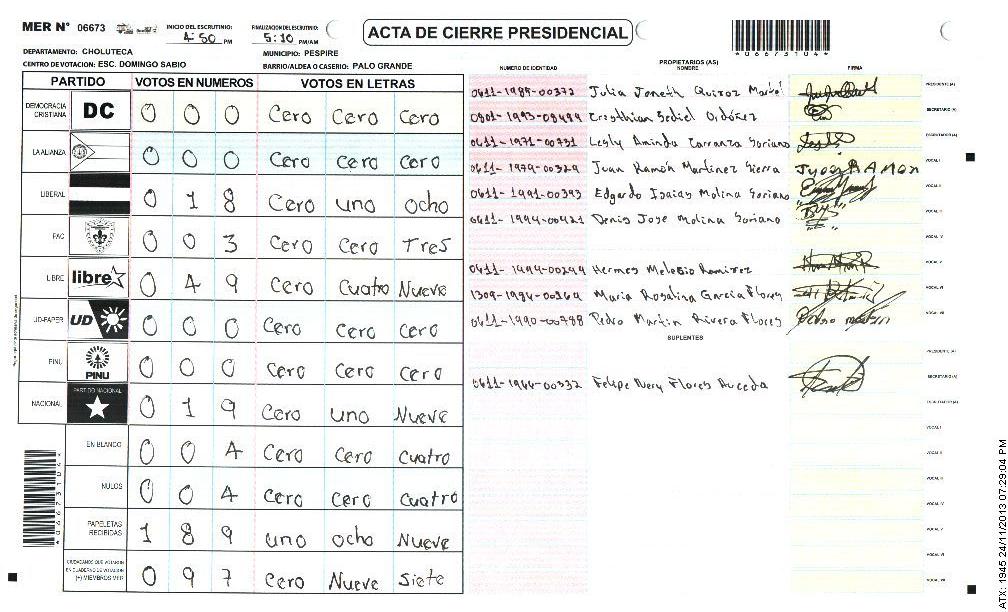 MER N° 06673 INICIO DEL ESCRUTINIO: 4:50 PM FINALIZACION DEL ESCRUTINIO: 5:10 PM/AM
ACTA DE CIERRE PRESIDENCIAL
*06673104*
DEPARTAMENTO: CHOLUTECA MUNICIPIO: PESPIRE
CENTRO DE VOTACION: ESC. DOMINGO SABIO BARRIO/ALDEA O CASERIO: PALO GRANDE
PARTIDO VOTOS EN NUMEROS VOTOS EN LETRAS
DEMOCRACIA CRISTIANA DC 0 0 0 Cero Cero Cero
LA ALIANZA 0 0 0 Cero Cero Cero
LIBERAL 0 1 8 Cero uno ocho
PAC 0 0 3 Cero Cero Tres
LIBRE libre 0 4 9 Cero Cuatro Nueve
UD-FAPER UD 0 0 0 Cero Cero Cero
PINU PINU 0 0 0 Cero Cero Cero
NACIONAL PARTIDO NACIONAL 0 1 9 Cero uno Nueve
EN BLANCO 0 0 4 Cero Cero Cuatro
NULOS 0 0 4 Cero Cero Cuatro
PAPELETAS RECIBIDAS 1 8 9 uno ocho Nueve
CIUDADANOS QUE VOTARON EN CUADERNO DE VOTACION (+) MIEMBROS MER 0 9 7 Cero Nueve Siete
*06673104*
PROPIETARIOS (AS)
NUMERO DE IDENTIDAD NOMBRE FIRMA
0611-1989-00372 Julia Joneth Quiroz PRESIDENTE (A)
Ordóñez SECRETARIO (A)
0611-1971-00731 Lesly Aminda Carranza Soriano ESCRUTADOR (A)
0611-1979-00329 Juan Ramón Martinez Sierra VOCAL I
0611-1991-00393 Edgardo Isaias Molina Soriano VOCAL II
0611-1994-00421 Denis Jose Molina Soriano VOCAL III
VOCAL IV
0611-1944-00299 Hermes Ramirez VOCAL V
1309-1994-00264 Maria Rosalina Garcia Flores VOCAL VI
0611-1990-00788 Pedro Martin Rivera Flores Pedro martin VOCAL VII
SUPLENTES
PRESIDENTE (A)
0611-1964-00332 Felipe Nery Flores SECRETARIO (A)
ESCRUTADOR (A)
VOCAL I
VOCAL II
VOCAL III
VOCAL IV
VOCAL V
VOCAL VI
VOCAL VII
ATX: 1945 24/11/2013 07:29:04 PM